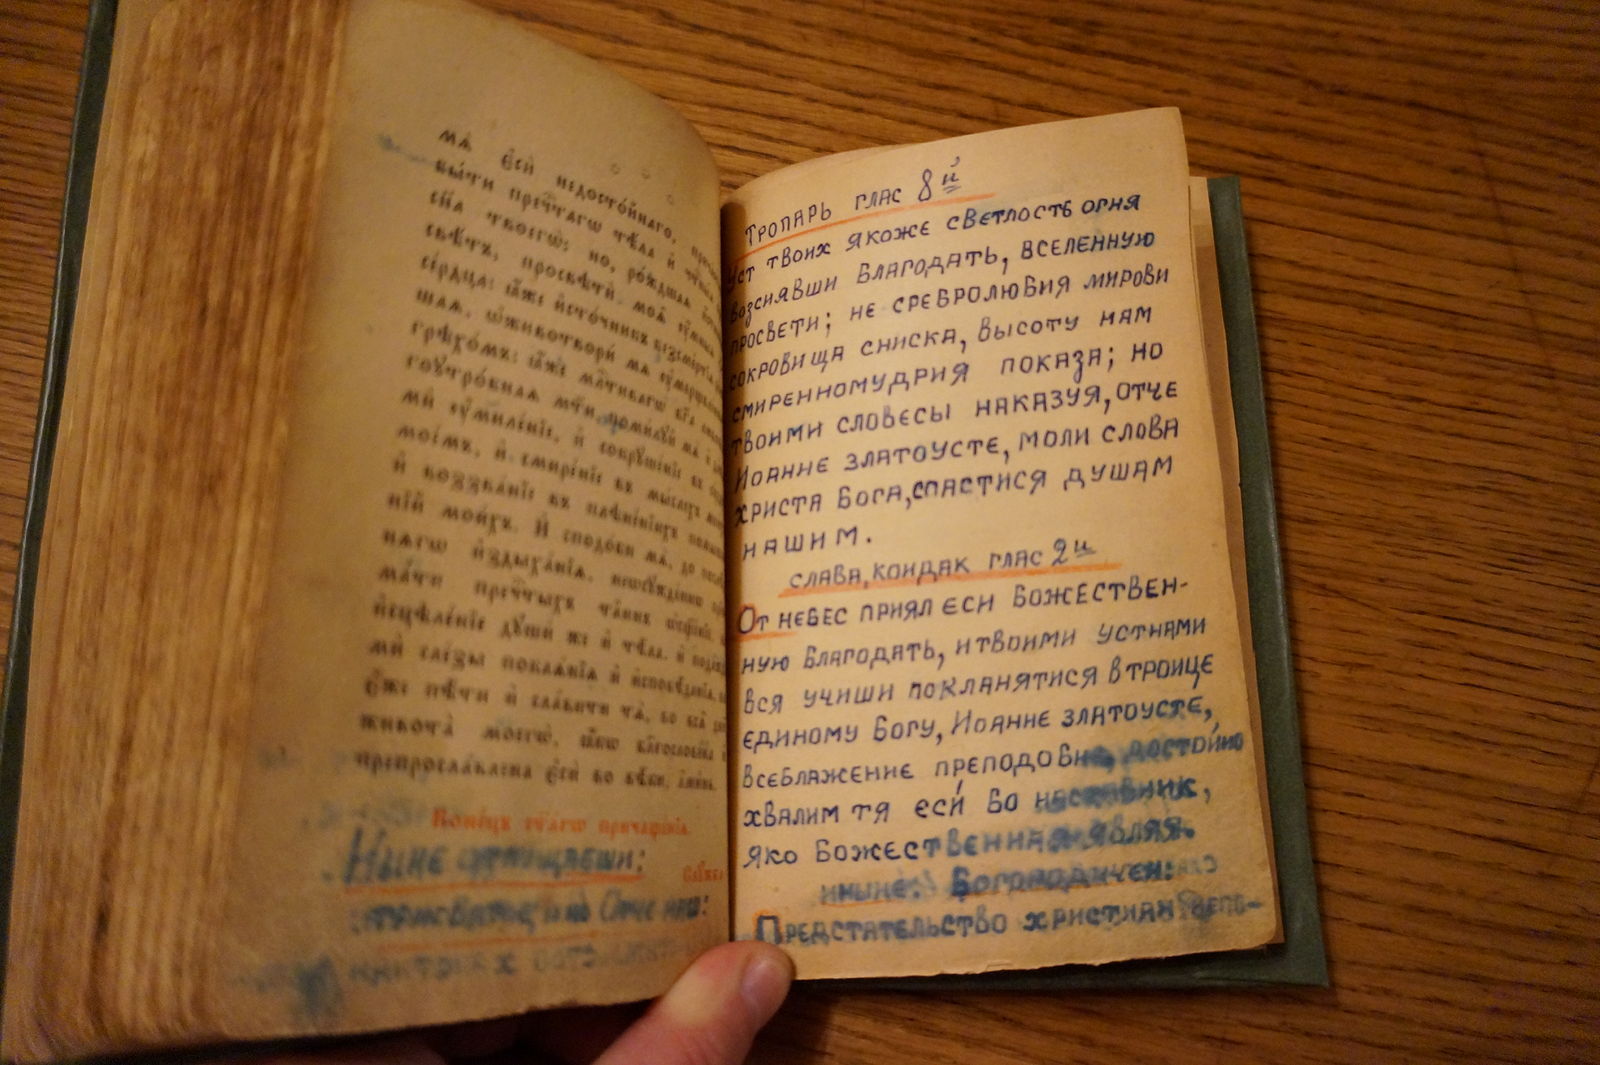 мѧ̀ є҆сѝ недосто́йнаго,
бы́ти пречⷭ҇тагѡ тѣ́ла и҆
сн҃а твоегѡ̀: но, ро́ждшаѧ
свѣ́тъ, просвѣтѝ моѧ̑ ᲂу҆́мныѧ
се́рдца: ꙗ҆́же и҆сто́чникъ безсме́ртїѧ
шаѧ, ѡ҆животворѝ мѧ ᲂу҆мерщвле́ннаго
грѣхо́мъ: ꙗ҆́же ми́лостивагѡ бг҃а
гоᲂутро́бнаѧ мт҃и, поми́лꙋй мѧ и҆
мѝ ᲂу҆миле́нїе, и҆ сокрꙋше́нїе въ
мое́мъ, и҆ смире́нїе въ мы́слехъ
и҆ воззва́нїе въ плѣне́нїихъ
нїй мои́хъ. И҆ сподо́би мѧ, до
нѧгѡ и҆здыха́нїѧ, неѡсꙋжде́ннѡ
ма́ти пречⷭ҇тыхъ та́инъ
и҆сцѣле́нїе дꙋшѝ же и҆ тѣ́ла. и҆
мѝ сле́зы покаѧ́нїѧ и҆ и҆сповѣ́данїѧ,
є҆́же пѣ́ти и҆ сла́вити тѧ̀, во всѧ̑
живота̀ моегѡ̀, ꙗ҆́кѡ благослове́на и҆
препросла́влена є҆сѝ во вѣ́ки, а҆ми́нь.
Коне́цъ ст҃а́гѡ причаще́нїѧ.
Ныне отпущаеши:
трисвятое, и по Отче наш:
Тропарь глас 8й
Уст твоих якоже светлость огня
возсиявши благодать, вселенную
просвети; не сребролюбия мирови
сокровища сниска, высоту нам
смиренномудрия показа; но
твоими словесы наказуя, отче
Иоанне златоусте, моли слова
христа Бога, спастися душам
нашим.
слава, кондак глас 2й
От небес приял еси божествен-
ную благодать, и твоими устнами
вся учиши покланятися в троице
единому Богу, Иоанне златоусте,
всеблаженне преподобне, достойно
хвалим тя еси бо наставник,
яко божественная являя.
и ныне: Богородичен:
Предстательство христиан непо-